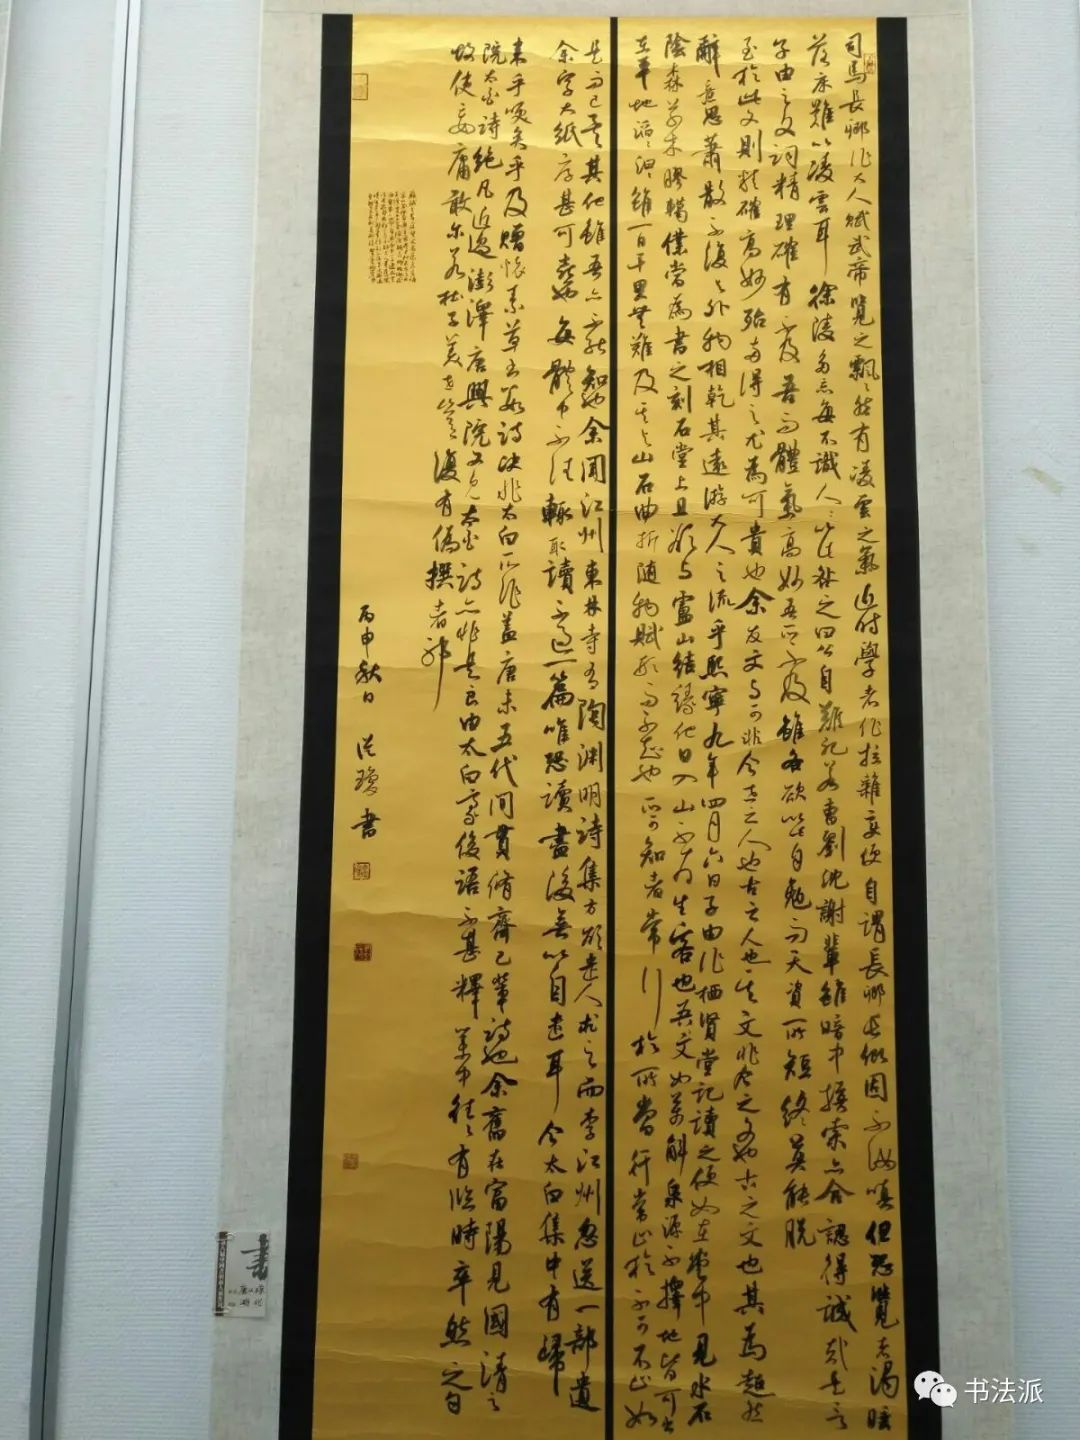 司馬長卿作大人賦武帝覽之飄飄然有凌雲之氣近時學者作拉雜變便自謂長卿長卿固不汝嗔但恐覽者渴睡
落床難以凌雲耳 徐陵多忘每不識人人以此咎之曰公自難記若曹劉沈謝輩雖暗中摸索亦合認得誠哉是言
子由之文詞精理確有不及吾而體氣高妙吾所不及雖各欲以此自勉而天資所短終莫能脫
至於此文則精確高妙殆兩得之尤為可貴也余友文與可非今世之人也古之人也其文非今之文也古之文也其為超然
辭意思蕭散不復與外物相乾其遠游大人之流乎熙寧九年四月六日子由作栖賢堂記讀之便如在堂中見水石
陰森草木膠轕僕當為書之刻石堂上且欲與廬山結緣他日入山不為生客也吾文如萬斛泉源不擇地皆可出
在平地滔滔汩汩雖一日千里無難及其與山石曲折隨物賦形而不可知也所可知者常行於所當行常止於不可不止如
是而已矣其他雖吾亦不能知也余聞江州東林寺有陶淵明詩集方欲遣人求之而李江州忽送一部遺
余字大紙厚甚可喜也每體中不佳輒取讀不過一篇唯恐讀盡後無以自遣耳 今太白集中有歸
來乎笑矣乎及贈懷素草書數詩決非太白所作蓋唐末五代間貫休齊己輩詩也余舊在富陽見國清
院太白詩絕凡近過彭澤唐興院又見太白詩亦非是良由太白豪俊語不甚擇集中往往有臨時率然之句
故使妄庸敢爾若杜子美世豈復有偽撰者邪
丙申秋日
書
書
书法派